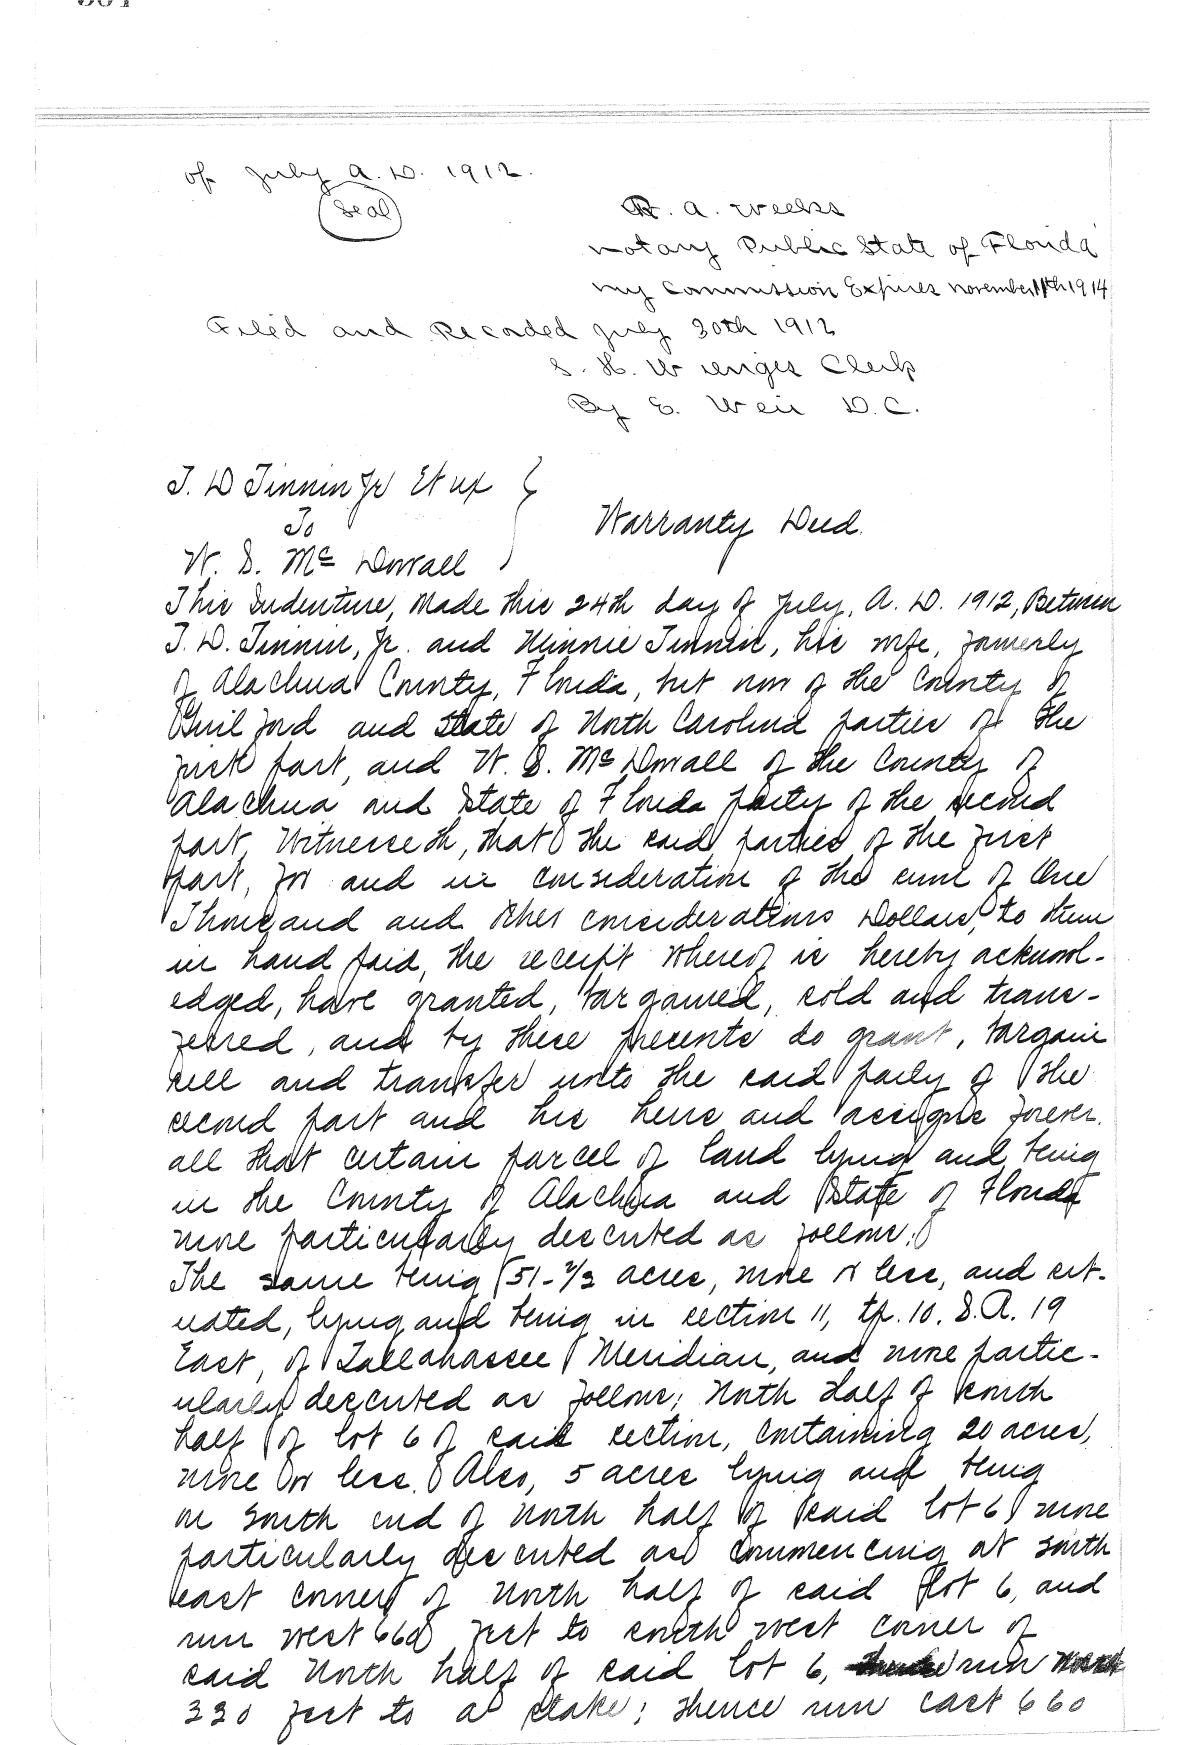 of July A. D. 1912.
Seal
R. A. Weeks
Notary Public State of Florida
My Commission Expires November 11th 1914
Filed and Recorded July 30th 1912
S. H. Wienges Clerk
By E. Weir D.C.
T. D Tinnin Jr Et ux
To
Warranty Deed.
W. S. Mc Dowall
This Indenture, Made this 24th day of July, A. D. 1912, Between
T. D. Tinnin, Jr. and Minnie Tinnin, his wife, formerly
of Alachua County, Florida, but now of the County of
Guilford and State of North Carolina parties of the
first part, and W. S. Mc Dowall of the County of
Alachua and State of Florida party of the second
part, Witnesseth, that the said parties of the first
part, for and in consideration of the sum of One
Thousand and other considerations Dollars, to them
in hand paid, the receipt whereof is hereby acknowl-
edged, have granted, bargained, sold and trans-
ferred, and by these presents do grant, bargain
sell and transfer unto the said party of the
second part and his heirs and assigns forever.
all that certain parcel of land lying and being
in the County of Alachua and State of Florida
more particularly described as follows:
The same being 51-2/3 acres, more or less, and sit-
uated, lying and being in section 11, tp. 10. S. R. 19
East, of Tallahassee Meridian, and more partic-
ularly described as follows; North Half of South
half of lot 6 of said section, containing 20 acres,
more or less. Also, 5 acres lying and being
on South end of North half of said lot 6, more
particularly described as commencing at South
east corner of North half of said lot 6, and
run west 660 feet to South west corner of
said North half of said lot 6, run North
330 feet to a stake; thence run east 660